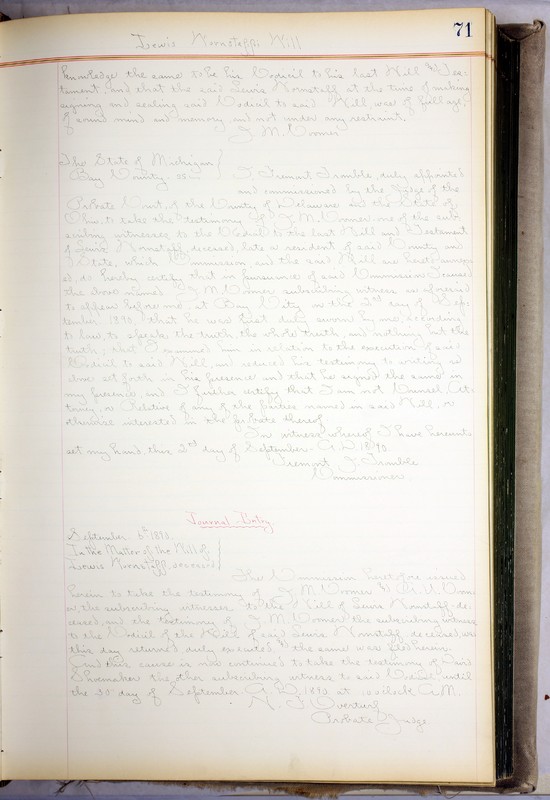 71
Lewis Kornstaff's Will
knowledge the same to be his Codicil to his last Will & Tes-
tament, and that the said Lewis Kornstaff at the time of making
signing and sealing said Codicil to said Will, was of full age,
of sound mind and memory, and not under any restraint.
The State of Michigan
Bay County. ss. I, Tremont J. Trimble, duly appointed
and commissioned by the Judge of the
Probate Court, of the County of Delaware and the State of
Ohio, to take the testimony of one of the sub-
scribing witnesses to the Codicil to the last Will and Testament
of Lewis Kornstaff deceased, late a resident of said County and
State, which Commission and the said Will are hereto annex-
ed, do hereby certify, that in pursuance of said Commission I caused
the above named subscribing witness as aforesaid
to appear before me, at Bay City, on the 2nd day of Sep-
tember 1890, that he was first duly sworn by me, according
to law, to speak the truth, the whole truth, and nothing but the
truth, that I examined him in relation to the execution of said
Codicil to said Will, and reduced his testimony to writing as
above set forth in his presence and that he signed the same in
my presence, and I further certify that I am not Counsel, At-
torney, or Relative of any of the parties named in said Will, or
otherwise interested in the probate thereof.
In witness whereof I have hereunto
set my hand, this 2nd day of September A.D. 1890.
Tremont J. Trimble
Commissioner
Journal Entry
September 6th 1890.
In the Matter of the Will of
Lewis Kornstaff, deceased
The Commission heretofore issued
herein to take the testimony of
the subscribing witnesses to the Will of Lewis Kornstaff, de-
ceased, and the testimony of the subscribing witness
to the Codicil of the Will of said Lewis Kornstaff, deceased, was
this day returned duly executed & the same was filed herein.
And this cause is now continued to take the testimony of
Shoemaker the other subscribing witness to said Codicil, until
the day of September A.D. 1890 at 10 o'clock A.M.
Overturf
Probate Judge